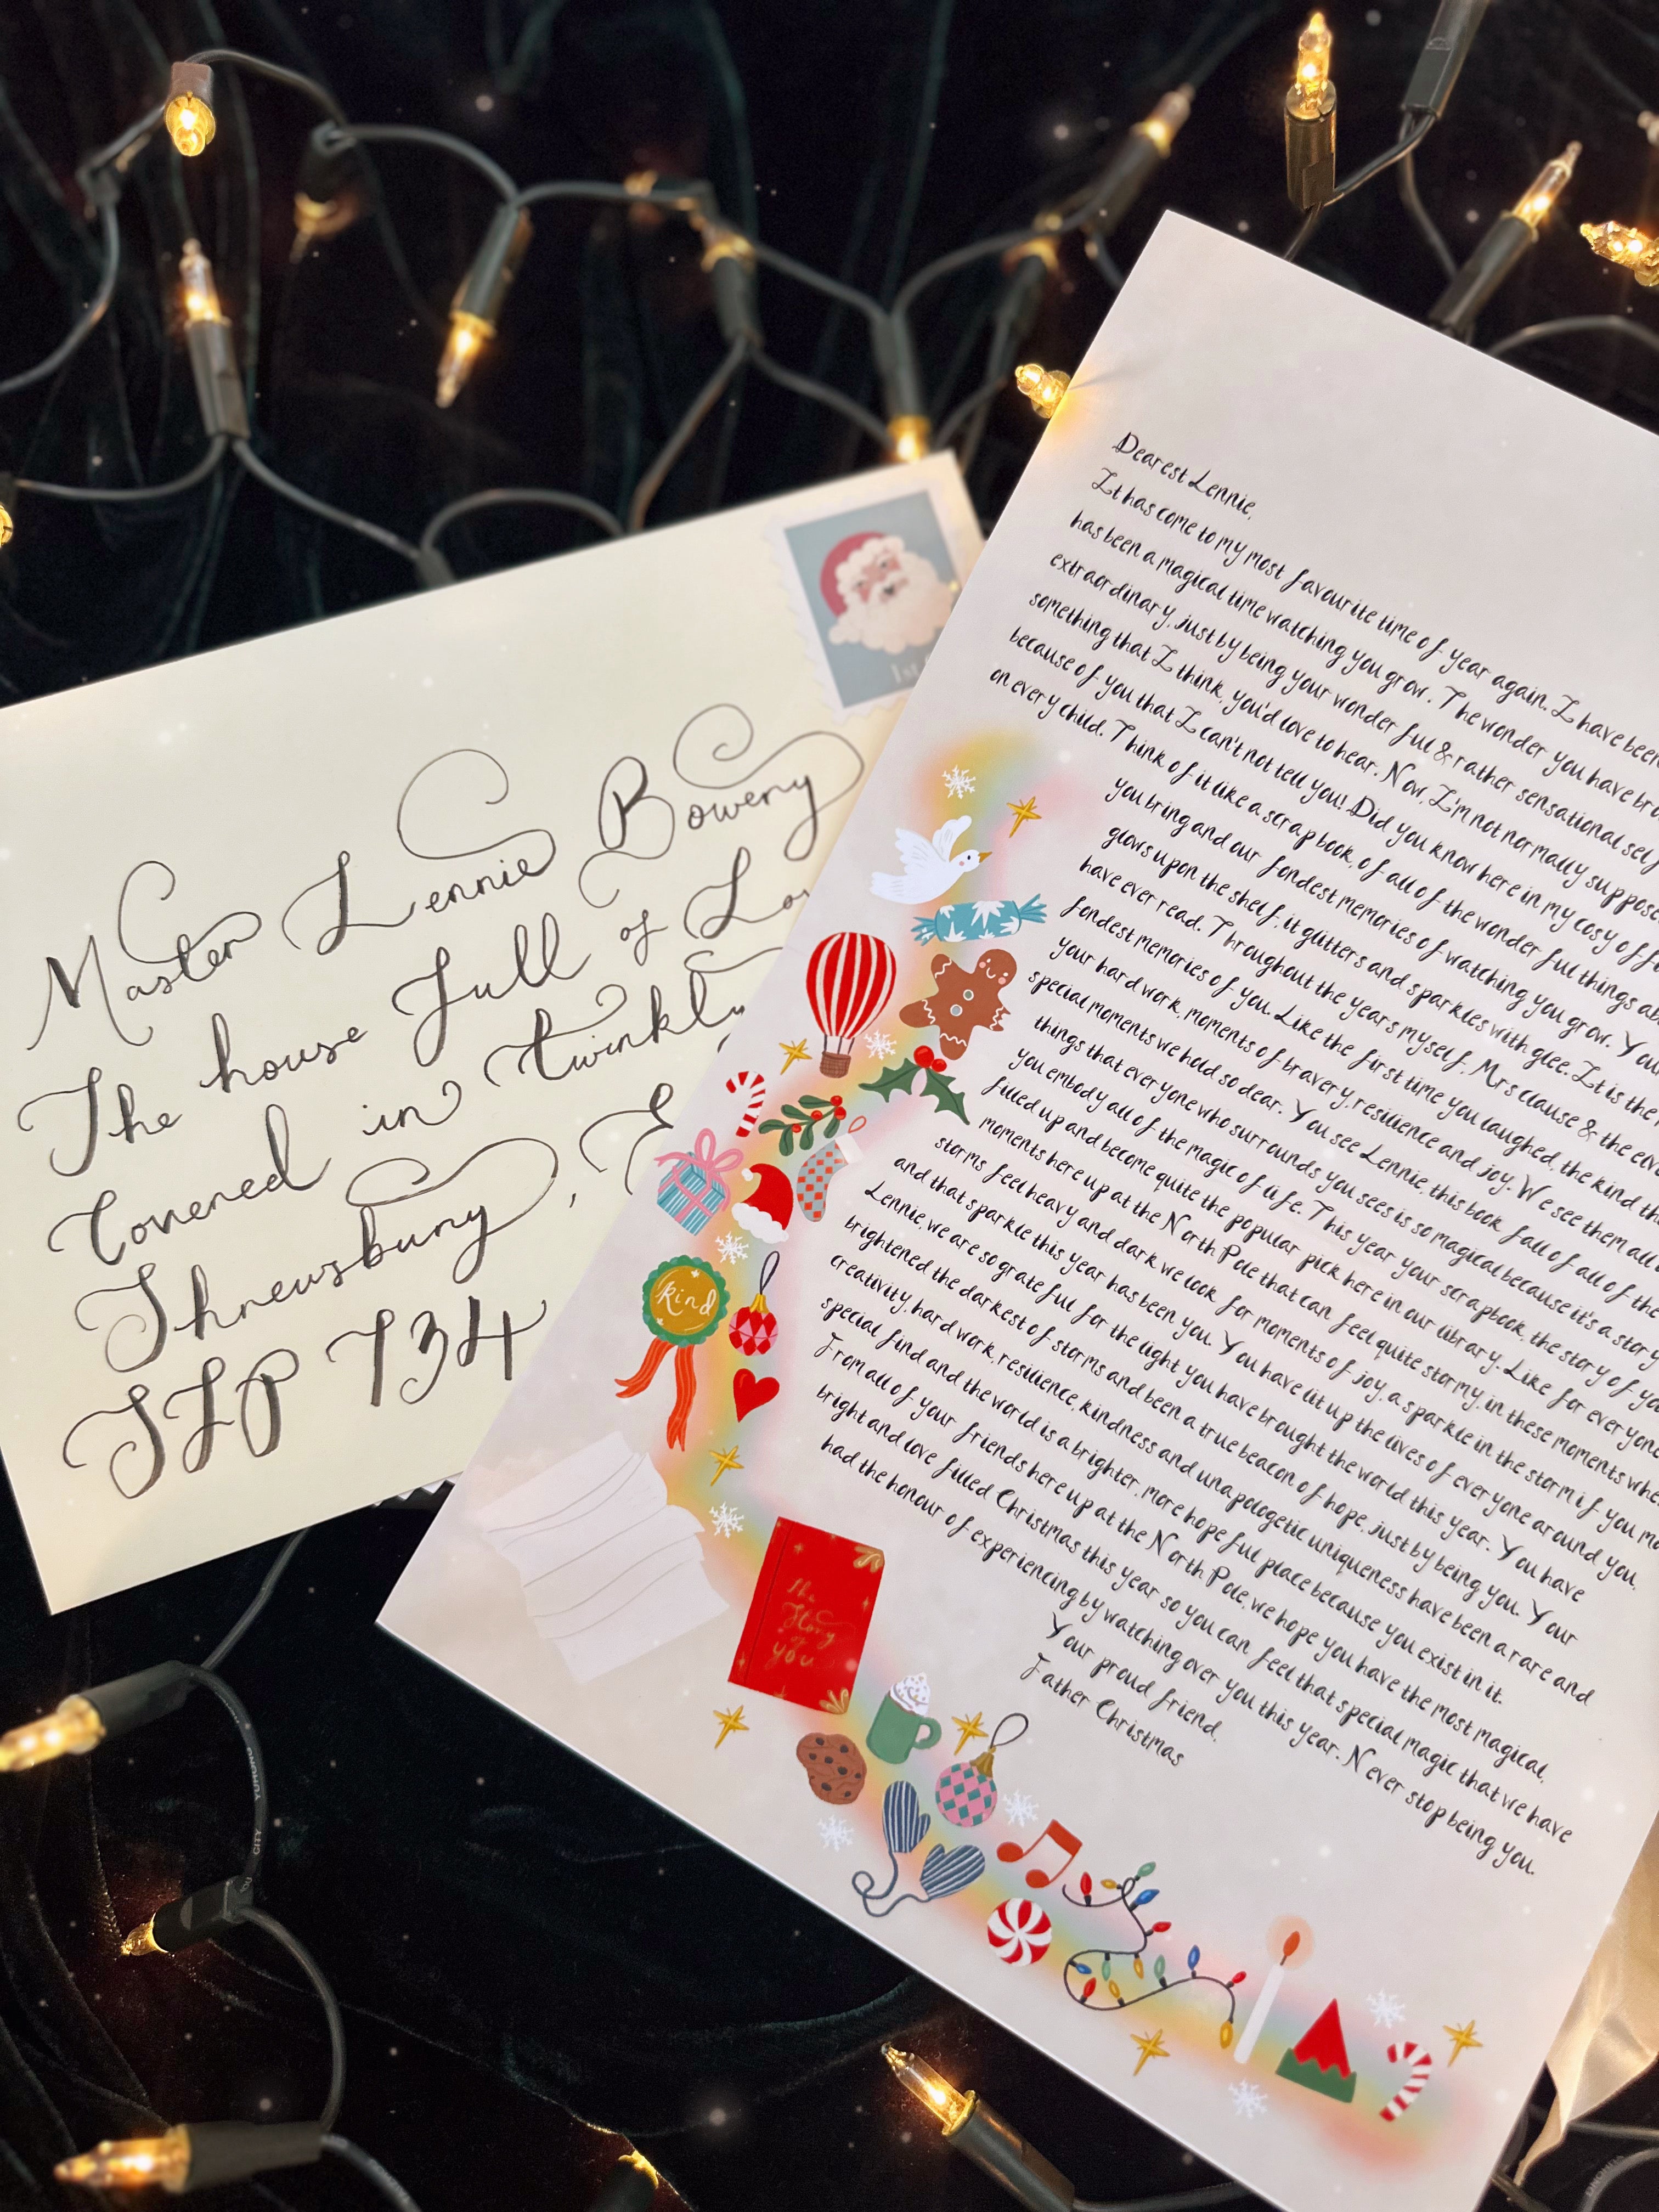 Master Lennie Bowery
The house full of
Covered in twinkly
Shrewsbury, E
SLP 734
1st
Dearest Lennie,
It has come to my most favourite time of year again. I have been
has been a magical time watching you grow. The wonder you have
extraordinary, just by being your wonderful & rather sensational self
something that I think, you'd love to hear. Now, I'm not normally
because of you that I can't not tell you! Did you know here in my cosy
on every child. Think of it like a scrapbook, of all of the wonderful things
you bring and our fondest memories of watching you grow.
glows upon the shelf, it glitters and sparkles with glee. It is the
have ever read. Throughout the years myself, Mrs Clause & the
fondest memories of you. Like the first time you laughed, the kind
your hard work, moments of bravery, resilience and joy. We see them all
special moments we hold so dear. You see Lennie, this book full of all of the
things that everyone who surrounds you sees is so magical because it's a story
you embody all of the magic of life. This year your scrapbook, the story of
filled up and become quite the popular pick here in our library. Like for everyone
moments here up at the North Pole that can feel quite stormy, in these moments
storms feel heavy and dark we look for moments of joy, a sparkle in the storm if you
and that sparkle this year has been you. You have lit up the lives of everyone around you,
Lennie, we are so grateful for the light you have brought the world this year. You have
brightened the darkest of storms and been a true beacon of hope, just by being you. Your
creativity, hard work, resilience, kindness and unapologetic uniqueness have been a rare and
special find and the world is a brighter, more hopeful place because you exist in it.
From all of your friends here up at the North Pole, we hope you have the most magical,
bright and love filled Christmas this year so you can feel that special magic that we have
had the honour of experiencing by watching over you this year. Never stop being you.
Your proud friend,
Father Christmas
kind
The
Story
of
you